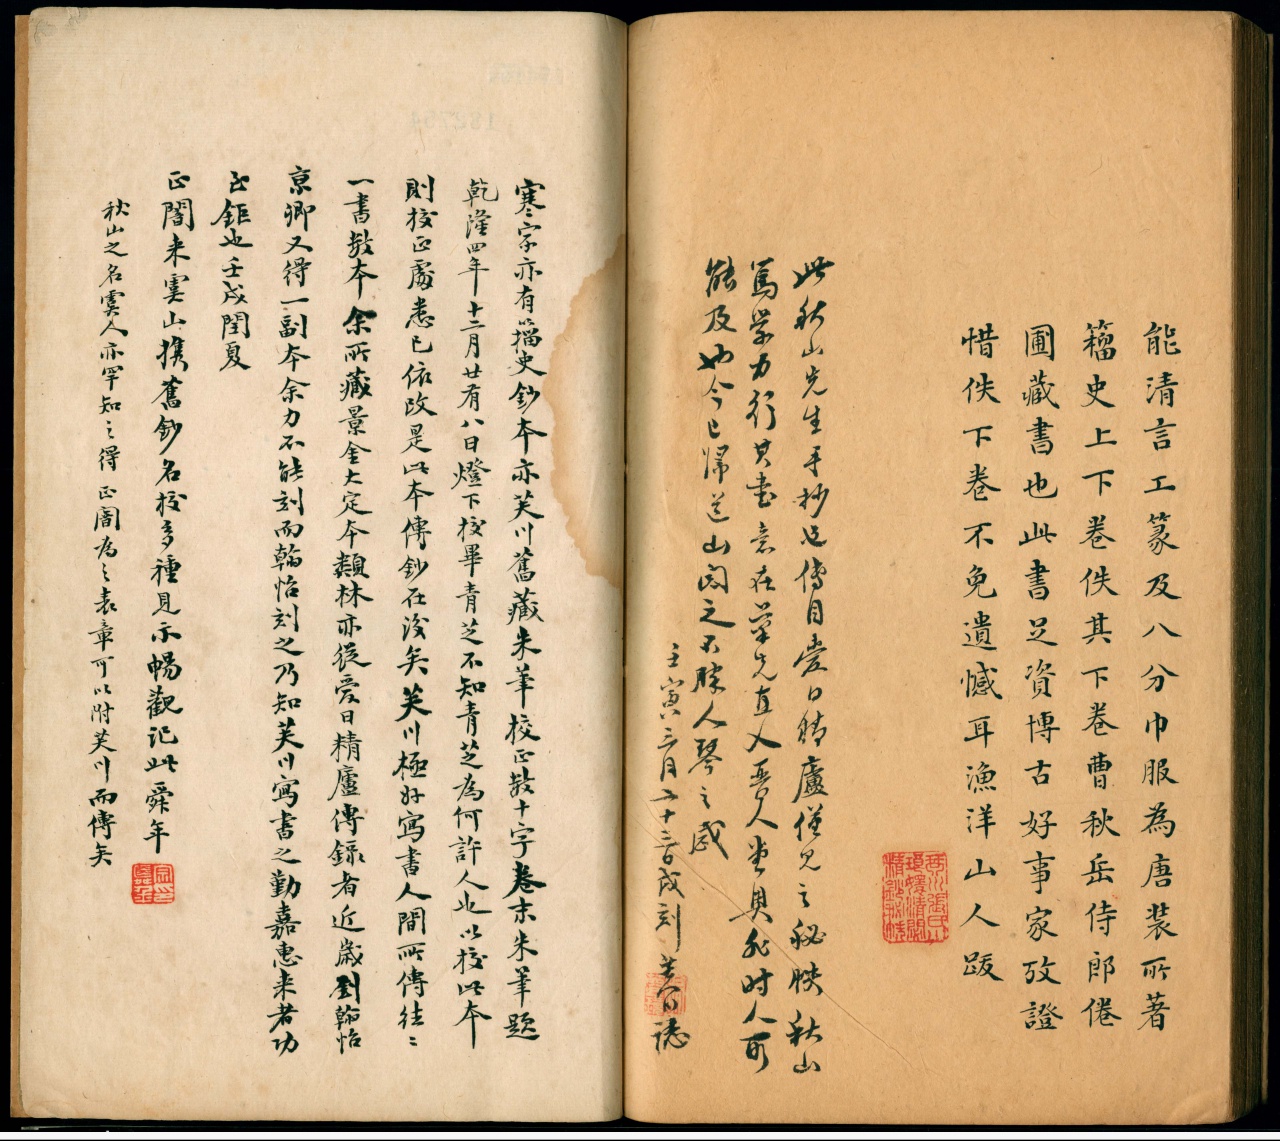 能清言工篆及八分巾服為唐装所著
籀史上下卷佚其下卷曹秋岳侍郎倦
圃藏書也此書足資博古好事家攷證
惜佚下卷不免遺憾耳漁洋山人跋
此秋山先生手抄也傳自愛日精廬僅見之秘映秋山
篤學力行其書意在草先直入晋人堂奥非时人所
能及也今已歸道山閱之不勝人琴之感
壬寅三月二十三日戌刻芙川誌
寒字亦有籀史鈔本亦芙川舊藏朱筆校正數十字卷末朱筆題
乾隆四年十二月廿有八日燈下校畢青芝不知青芝為何許人也以校此本
則校正處悉已依改是此本傳鈔在後矣芙川極好寫書人間所傳往〻
一書數本余所藏景金大定本類林亦從愛日精廬傳錄者近歲劉翰怡
京卿又得一副本余力不能刻而翰怡刻之乃知芙川寫書之勤嘉惠来者功
至鉅也壬戌閏夏
正闇来雲山携舊鈔名校多種見示暢觀記此舜年
秋山之名虞人亦罕知之得正闇為之表章可以附芙川而傳矣